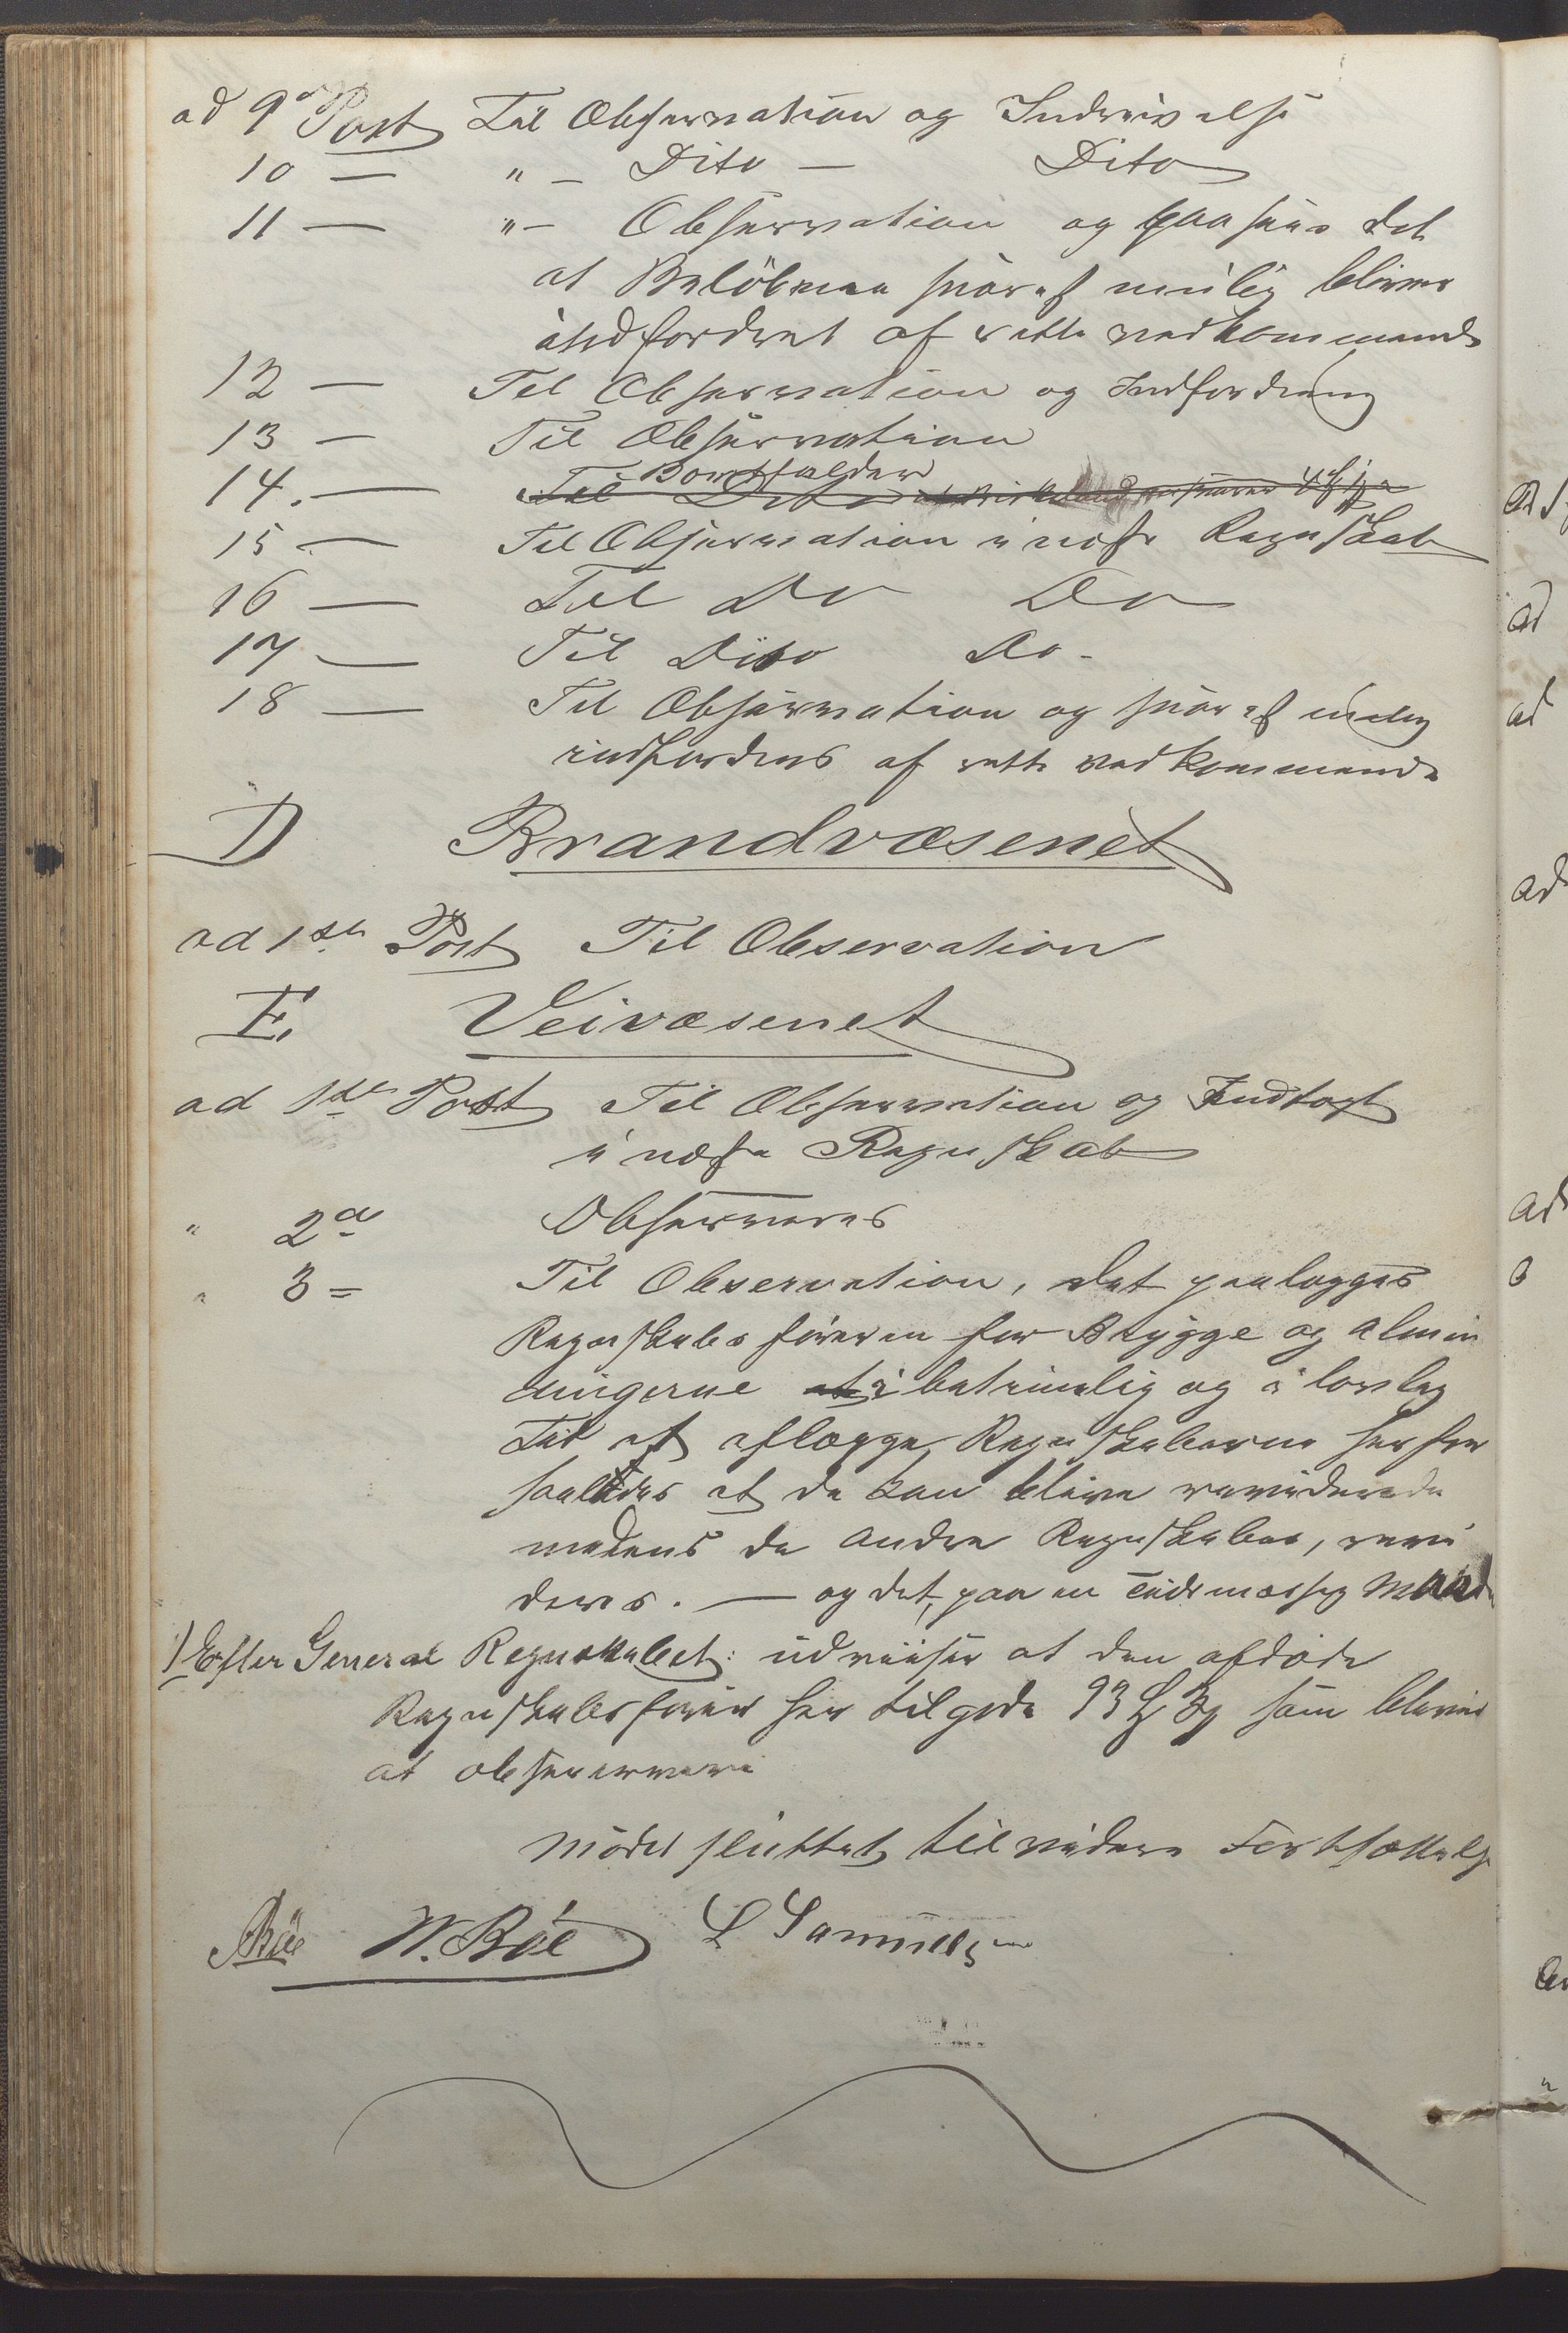 ad 9de Post Til Observation og Inddrivelse
10 — " — Dito — Dito
11 — " — Observation og paasees det
at Belöbene snarest mulig bliver
indfordret af rette vedkommende
12 — Til Observation og Indfordring
13 — Til Observation
Bortfalder
14. — Til Dito
15 — Til Observation i næste Regnskab
16 — Til Do Do
17 — Til Dito Do -
18 — Til Observation og snarest mulig
indfordres af rette vedkommende
D Brandvæsenet
ad 1ste Post Til Observation
E. Veivæsenet
ad 1ste Post Til Observation og Indtægt
i næste Regnskab
" 2de Observeres
" 3 = Til Observation, det paalægges
Regnskabsföreren for Brygge og Almin
dingerne i betimelig og i lovlig
Tid at aflægge Regnskaberne herfor
saaledes at de kan blive reviderede
medens de andre Regnskaber, revi
deres. — og det, paa en tidsmæssig Maade
1) Efter General Regnskabet: udviiser at den afdöde
Regnskabsförer har tilgode 93 som bliver
at observere
Mödet sluttet til videre Fortsættelse
Böe W. Böe L Samuelsen